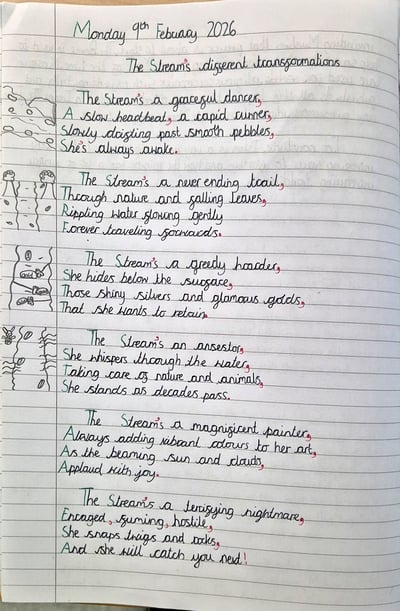 Monday 9th Febuary 2026
The Stream's different transformations
The Stream's a graceful dancer,
A slow headbeat, a rapid runner,
Slowly drifting past smooth pebbles,
She's always awake.
The Stream's a never ending trail,
Through nature and falling leaves,
Rippling water flowing gently
Forever traveling forwards.
The Stream's a greedy hoarder,
She hides below the surface,
Those shiny silvers and glamous golds,
That she wants to retain.
The Stream's an ansestor,
She whispers through the water,
Taking care of nature and animals,
She stands as decades pass.
The Stream's a magnificent painter,
Always adding vibrant colours to her art,
As the beaming sun and clouds,
Applaud with joy.
The Stream's a terrifying nightmare,
Enraged, fuming, hostile,
She snaps twigs and rocks,
And she will catch you next!